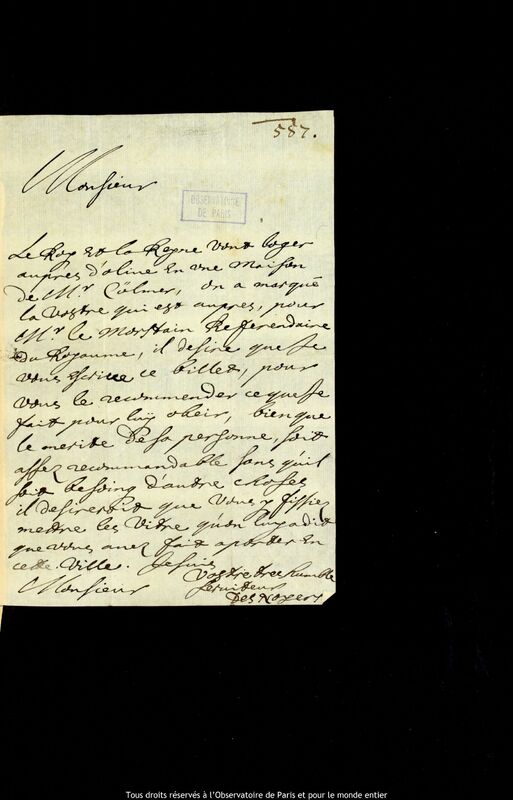 587.
Monsieur
OBSERVATOIRE
DE PARIS
Le Roy et la Reyne vont loger
aupres d'oliue En vne Maison
de Mr. Cölmer, on a marqué
la Vostre qui est aupres, pour
Mr. le Morstain Refferendaire
du Royaume, il desire que Je
vous Escriue ce billet, pour
vous le recommender ce que Je
fait pour luy obeir, bien que
le merite de sa personne, soit
assez recommandable sans qu'il
soit besoing d'autre choses
il desireroit que vous y fissiez
mettre les Vitre qu'on luy a dit
que vous auez fait aporter En
cette Ville. Je suis
Monsieur
Vostre tres humble
seruiteur
Des Noyers
Tous droits réservés à l'Observatoire de Paris et pour le monde entier